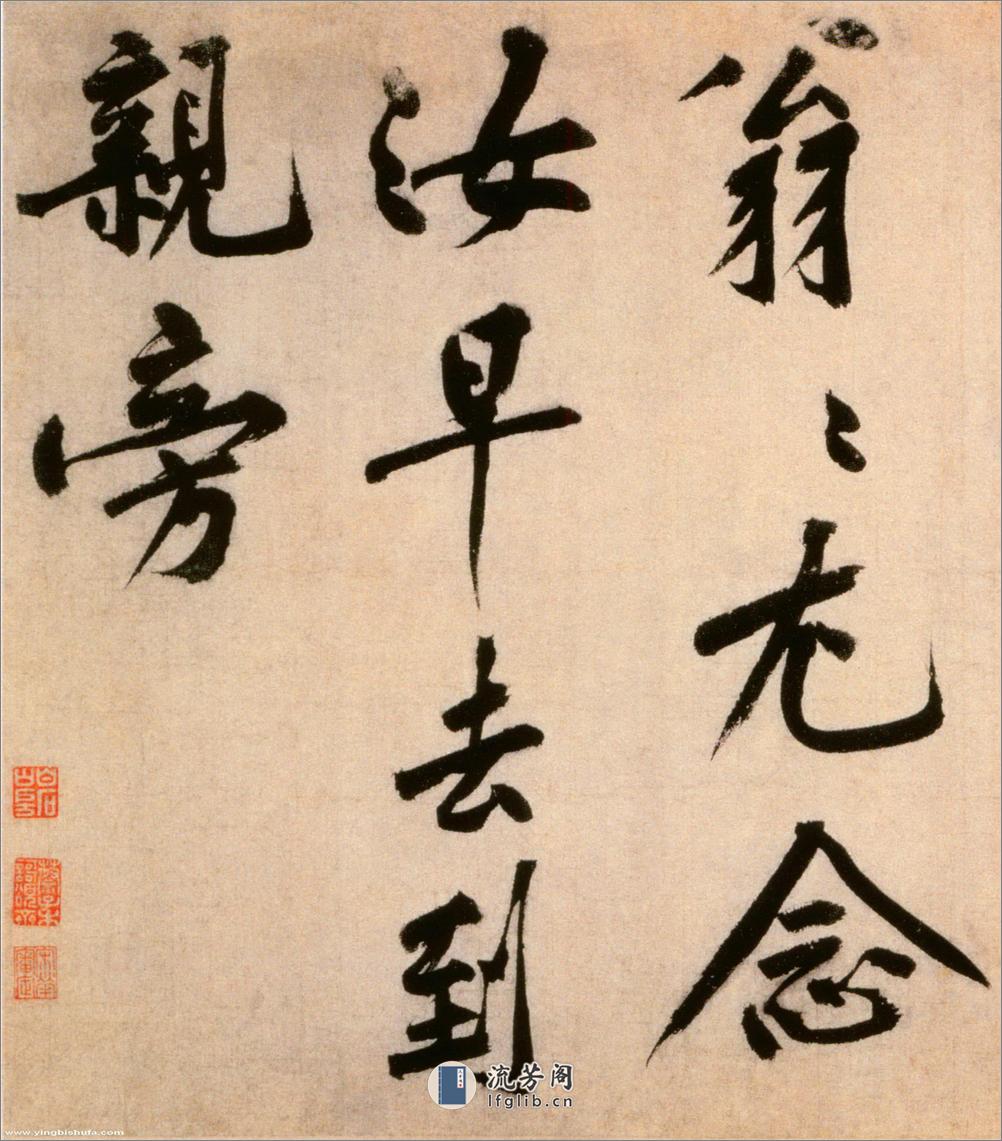 翁〻尤念
汝早去到
親旁
流芳阁
lfglib.cn
www.yingbishufa.com